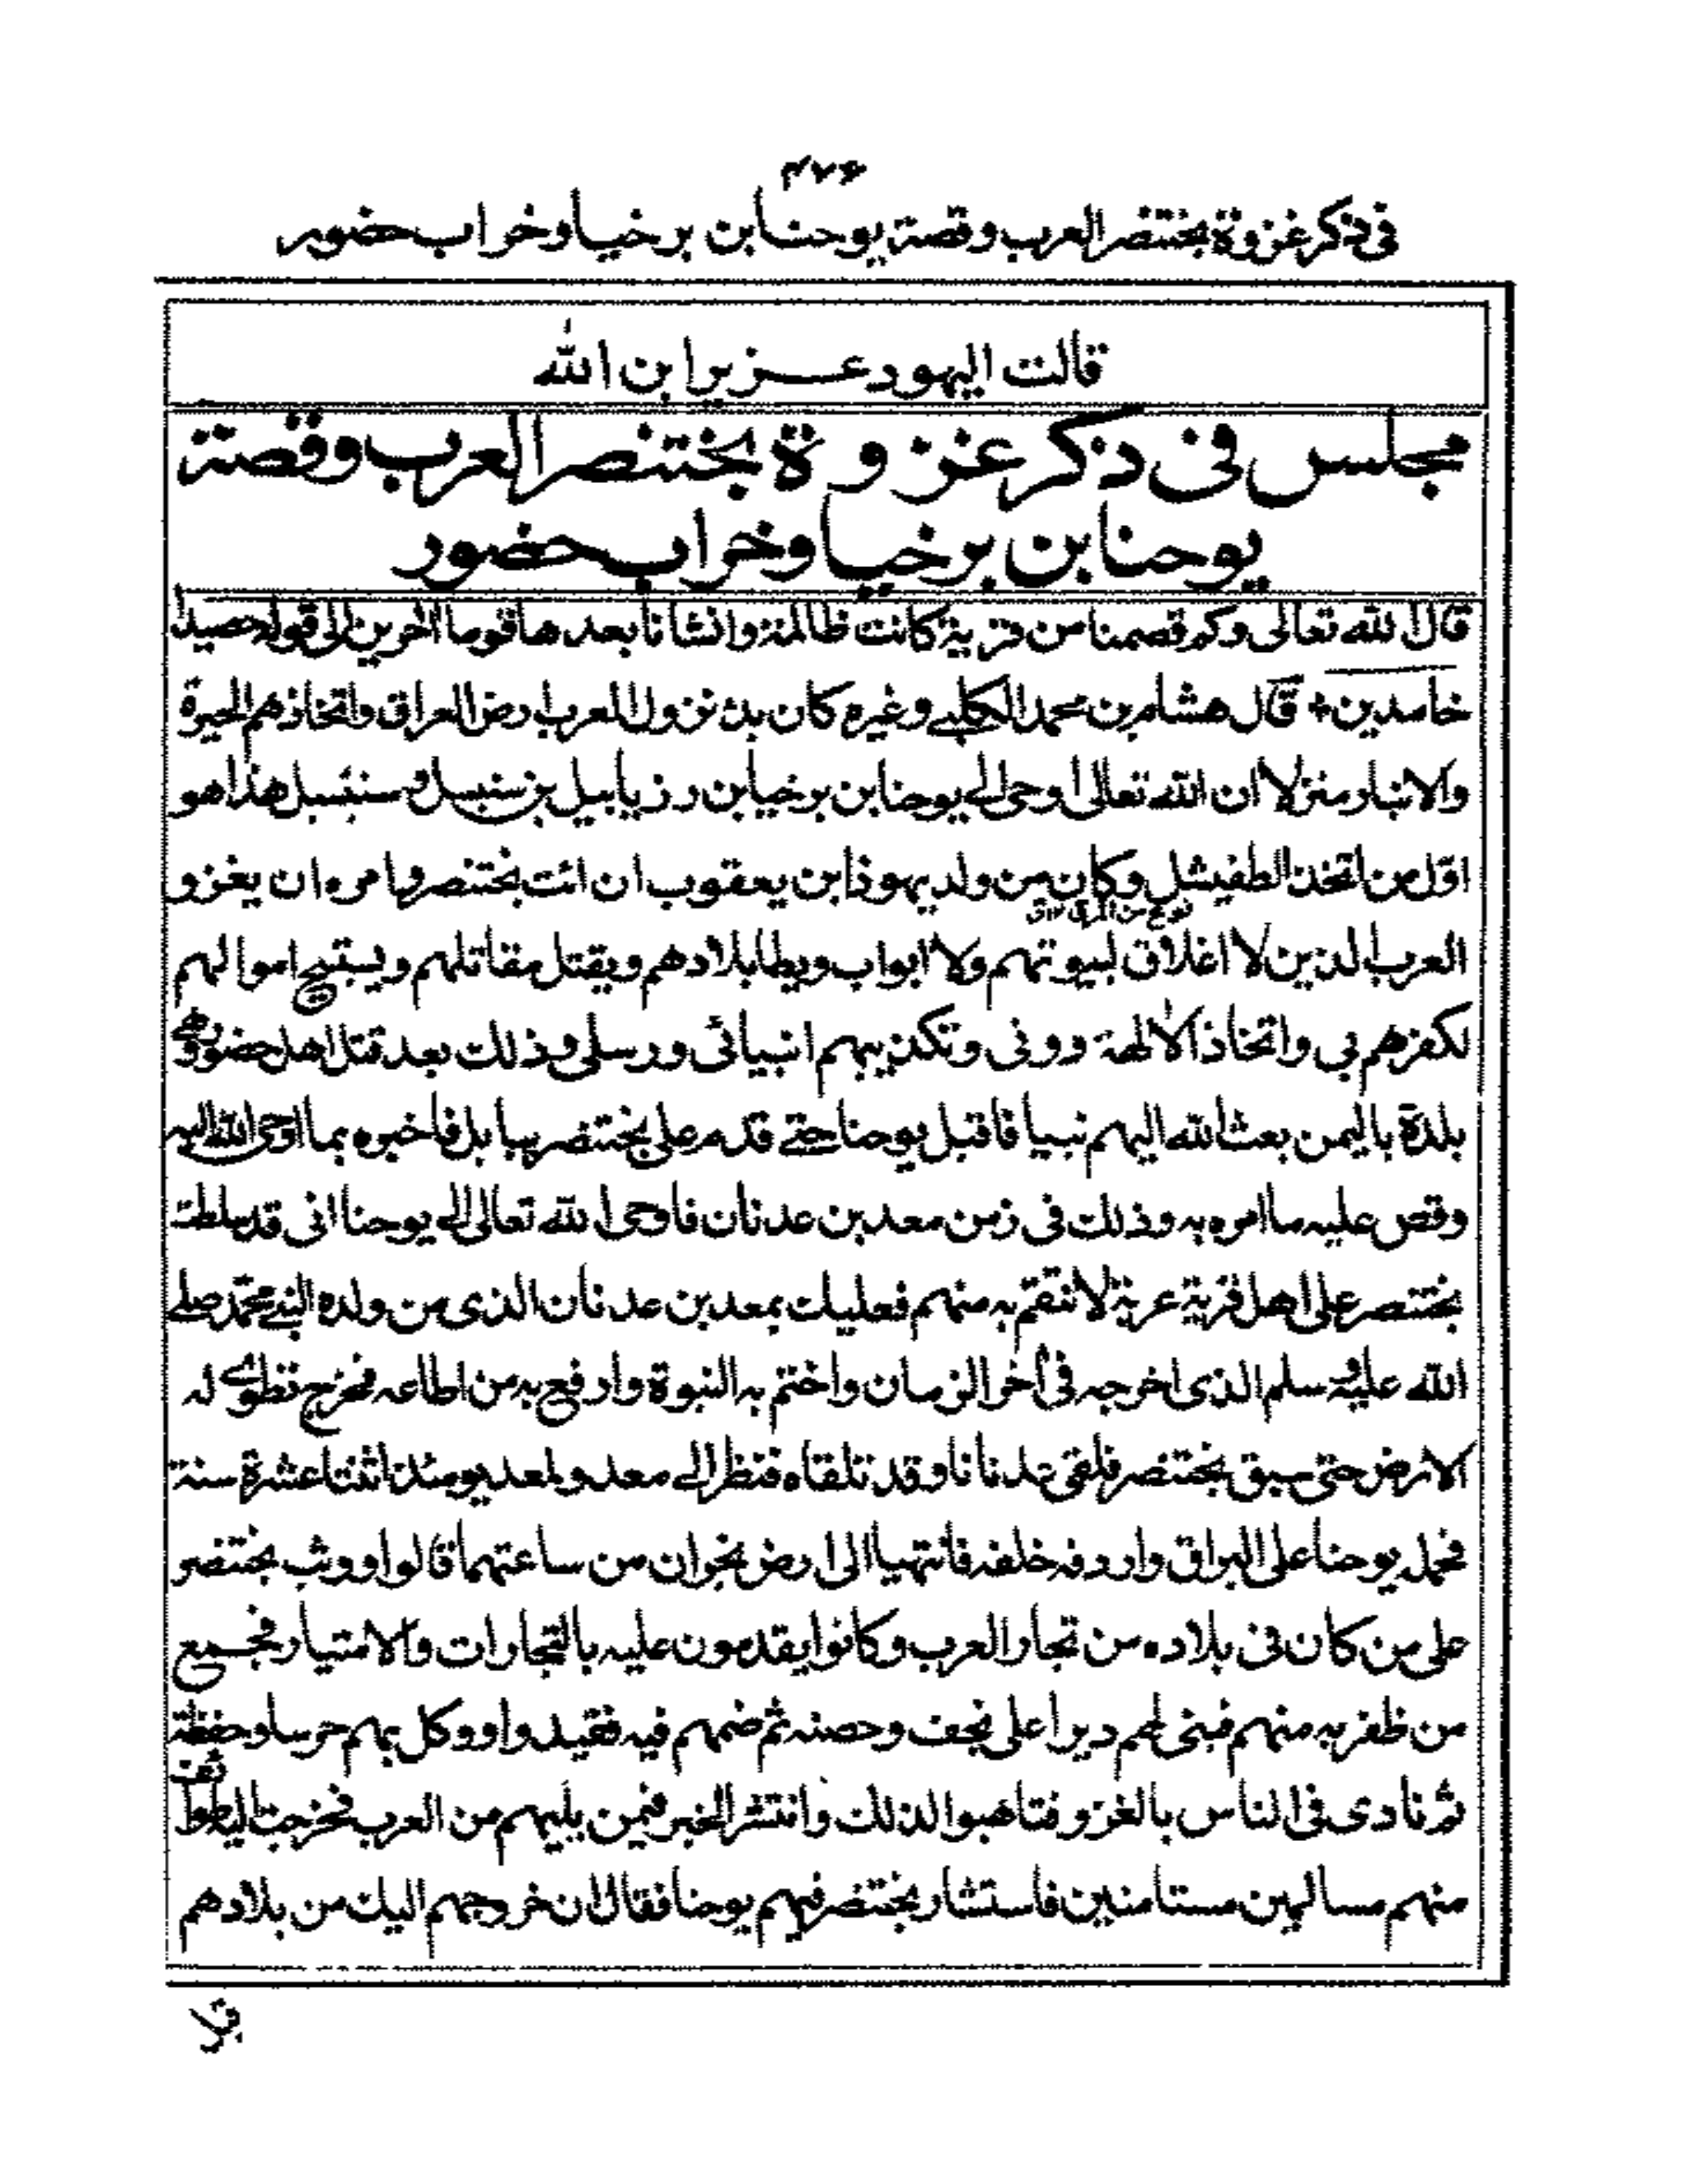 ۴۷۶
فی ذکر غزوة بختنصر العرب وقصة یوحنا بن برخیا وخراب حضور
قالت الیهود عزیر ابن الله
مجلس فی ذکر غزوة بختنصر العرب وقصة
یوحنا بن برخیا وخراب حضور
قال الله تعالی وکم قصمنا من قریة کانت ظالمة وانشانا بعدها قوما اخرین الی قوله حصیدا
خامدین قال هشام بن محمد الکلبے وغیره کان بدء نزول العرب ارض العراق واتخاذهم الحیرة
والانبار منزلا ان الله تعالی اوحی الے یوحنا بن برخیا بن رزیابیل بن سنبسل وسنبسبل هذا هو
اول من اتخذ الطفیشل وکان من ولد یهوذا بن یعقوب ان ائت بختنصر وامره ان یغزو
نوع من المرق
العرب الذین لا اغلاق لبیوتهم ولا ابواب ویطا بلادهم ویقتل مقاتلهم ویستبیح اموالهم
لکفرهم بی واتخاذ الالهة دونی وتکذیبهم انبیائی ورسلی وذلک بعد قتل اهل حضور وهے
بلدة بالیمن بعث الله الیهم نبیا فاقبل یوحنا حتے قدم علی بختنصر ببابل فاخبره بما اوحی الله الیه
وقص علیه ما امره به وذلک فی زمن معد بن عدنان فاوحی الله تعالی الے یوحنا انی قد سلطت
بختنصر علی اهل قریة عربة لانتقم به منهم فعلیک بمعد بن عدنان الذی من ولده النبے محمد صلے
الله علیه وسلم الذی اخرجه فی اخر الزمان واختم به النبوة وارفع به من اطاعه فخرج تطوے له
الارض حتی سبق بختنصر فلقی عدنانا وقد تلقاه فنظر الے معد ولمعد یومئذ اثنتا عشرة سنة
فحمله یوحنا علی البراق واردفه خلفه فانتهیا الی ارض نجران من ساعتهما قالوا ووثب بختنصر
علی من کان فی بلاده من تجار العرب وکانوا یقدمون علیه بالتجارات والامتیار فجمیع
من ظفر به منهم فبنی لهم دیرا علی نجف وحصنه ثم ضمهم فیه فقیدوا ووکل بهم حرسا وحفظة
ثم نادی فی الناس بالغزو فتاهبوا لذلک وانتشر الخبر فیمن یلیهم من العرب فخرجت الیه طوائف
منهم مسالمین مستامنین فاستشار بختنصر فیهم یوحنا فقال ان خروجهم الیک من بلادهم